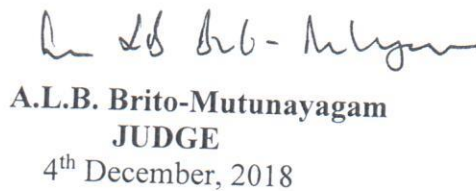 A.L.B. Brito-Mutunayagam
JUDGE
4th December, 2018